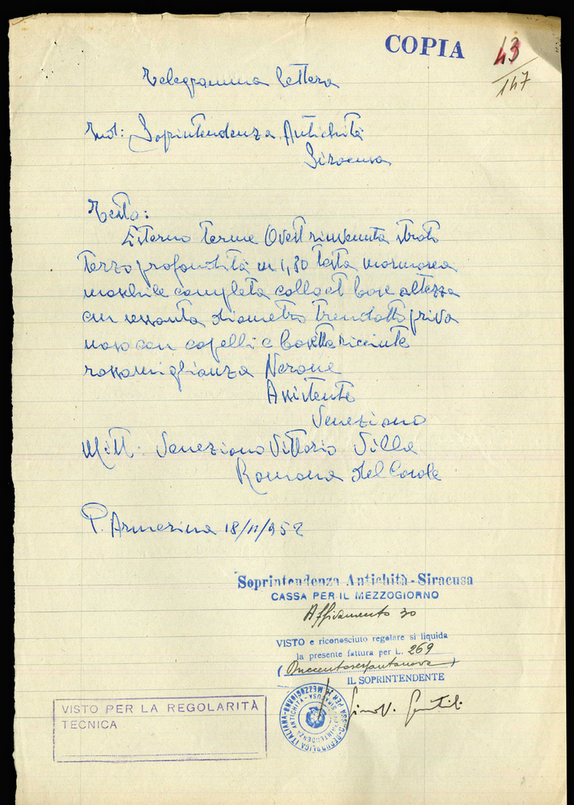 COPIA 43
147
Telegramma lettera
Ind: Soprintendenza Antichità
Siracusa
Testo:
Esterno terme Ovest rinvenuta strato
terzo profondità m 1,30 testa marmorea
maschile completa collo et base altezza
cm sessanta diametro trendotto priva
naso con capelli e basetta ricciute
rassomiglianza Nerone
Assistente
Veneziano
Mitt: Veneziano Vittorio Villa
Romana del Casale
P. Armerina 18/11/952
Soprintendenza Antichità - Siracusa
CASSA PER IL MEZZOGIORNO
Affidamento 30
VISTO e riconosciuto regolare si liquida
la presente fattura per L. 269
(Duecentosessantanove)
IL SOPRINTENDENTE
Gino V. Gentili
VISTO PER LA REGOLARITÀ
TECNICA